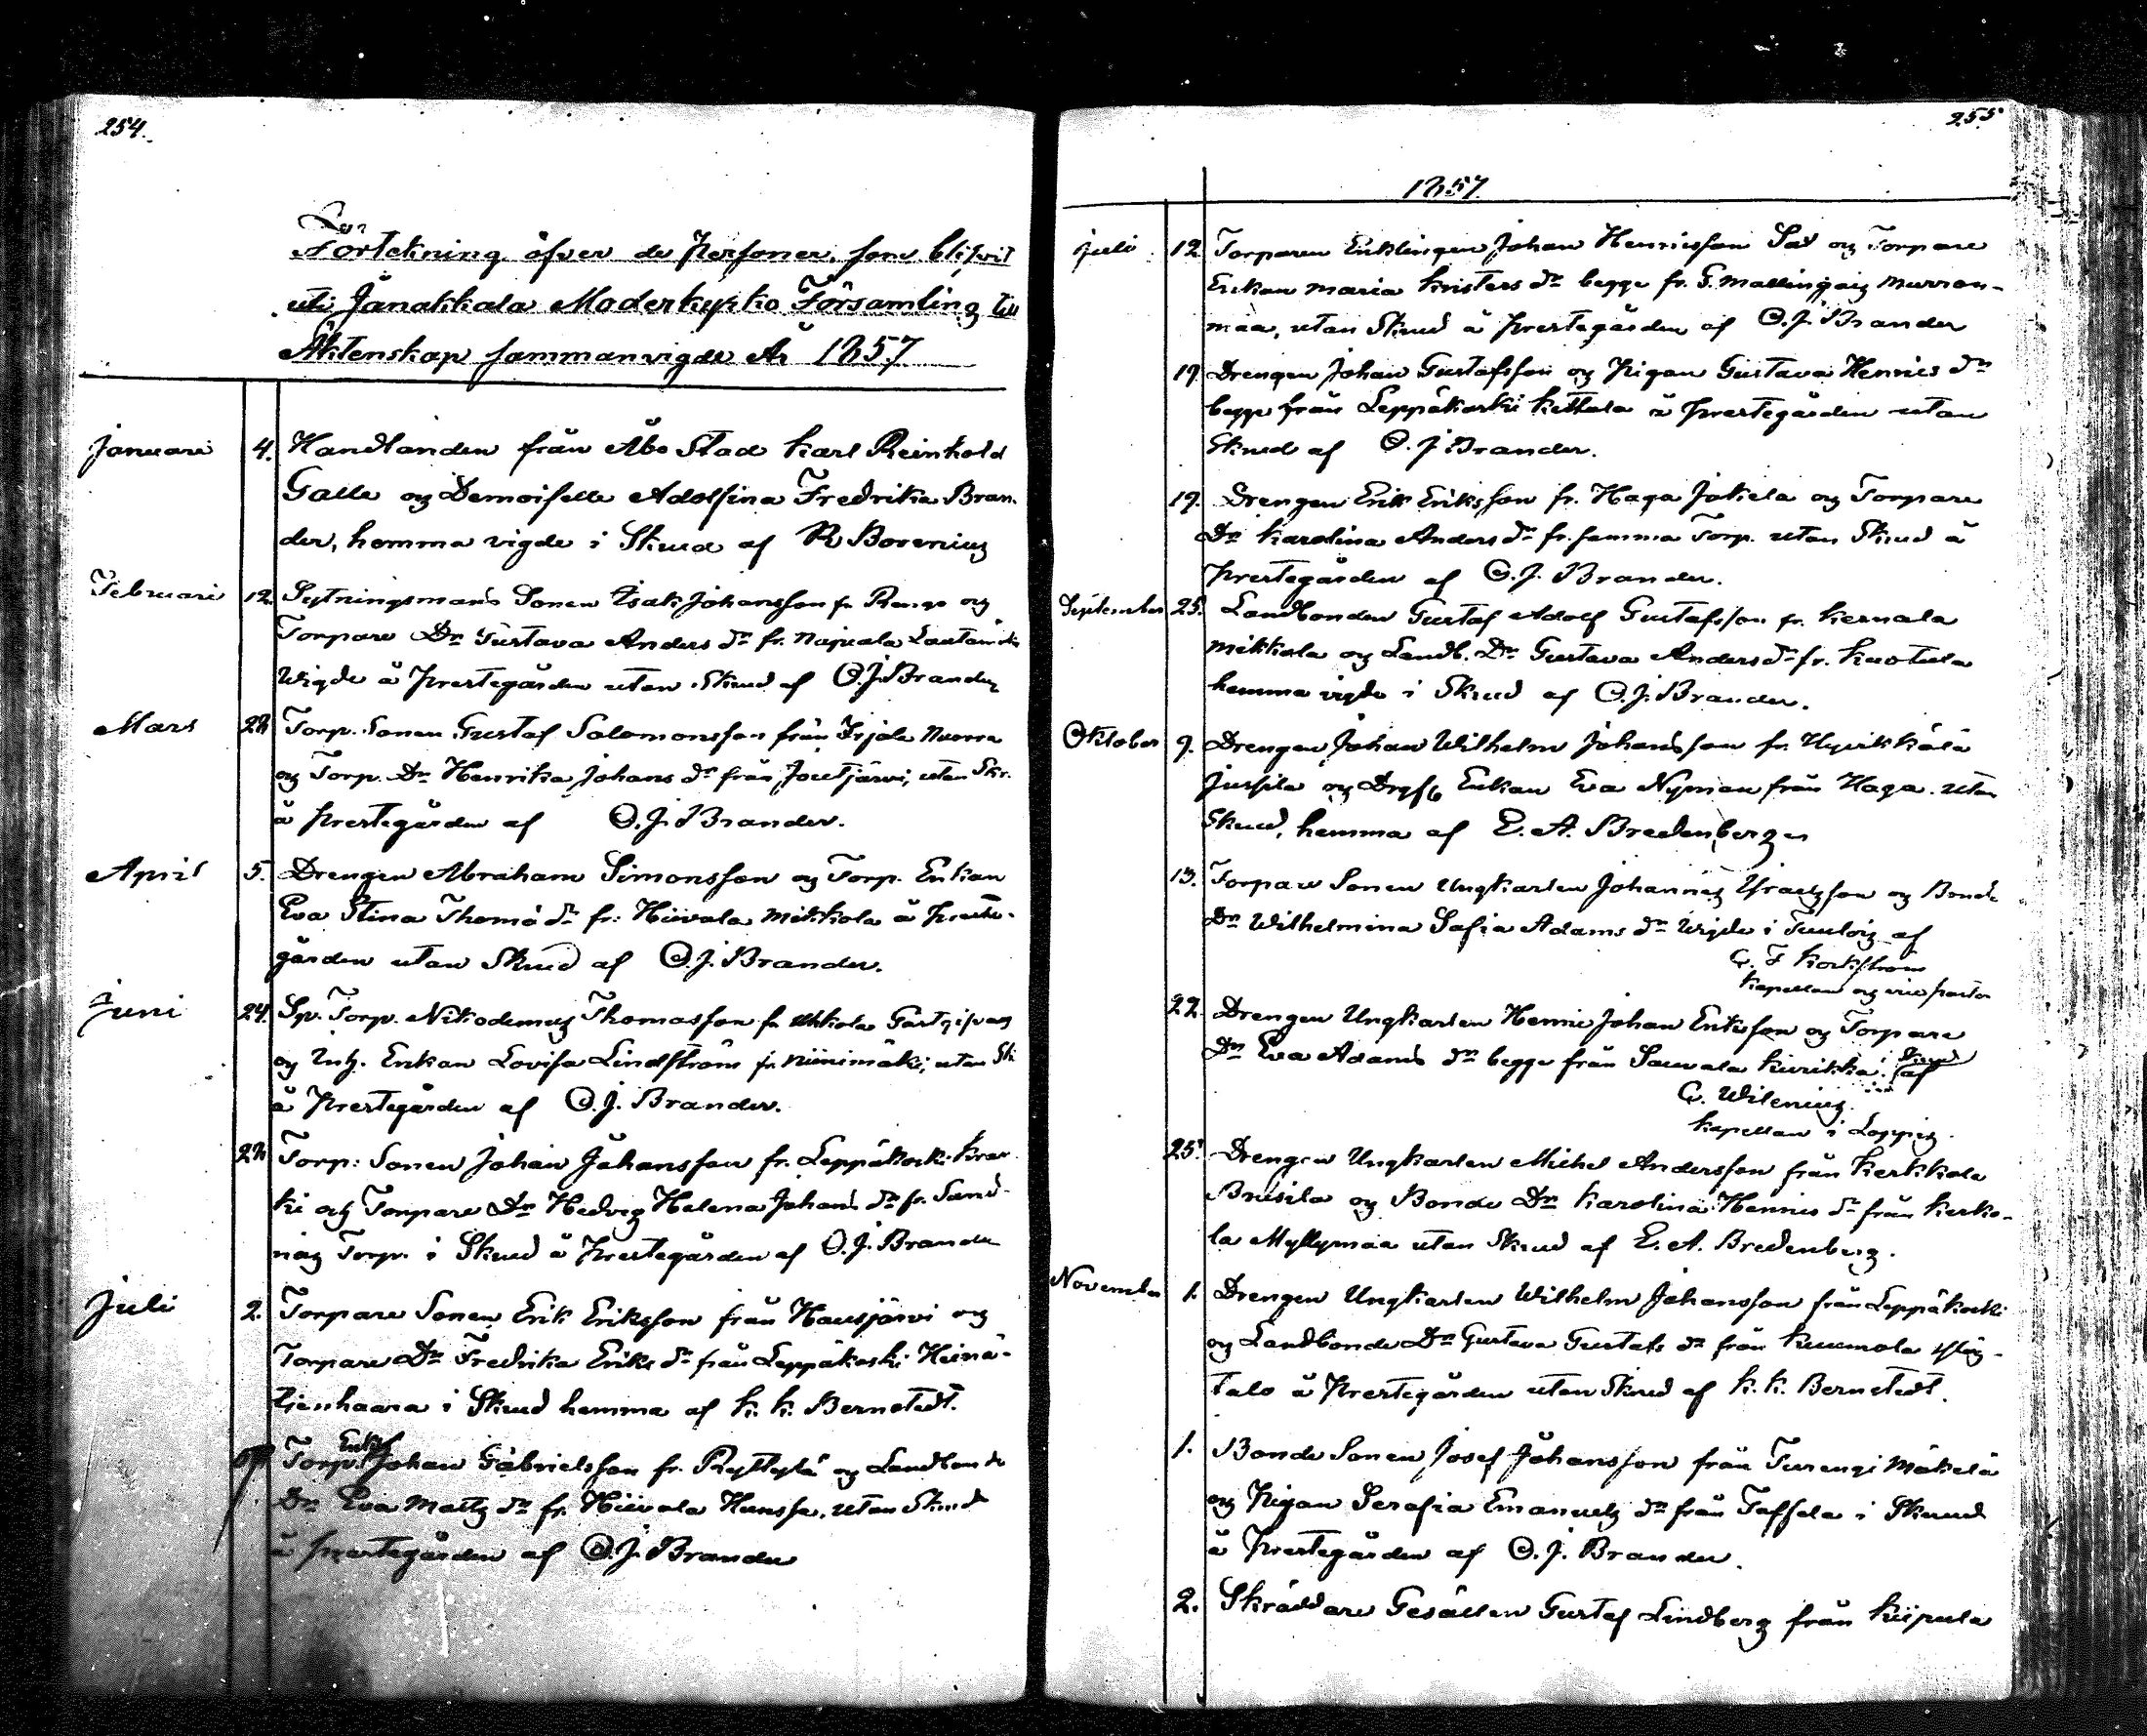 254.
Förtekning öfver de Personer, som blifvit
uti Janakkala Moderkyrko Församling till
Äktenskap sammanvigde År 1857
Januari 4. Handlanden från Åbo Stad Karl Reinhold
Galle og Demoiselle Adolfina Fredrika Bran-
der, hemma vigde i Skrud af R Borenius
Februari 12. Sytningsmans Sonen Isak Johansson fr. Rango og
Torpare Dr Gustava Anders dr fr. Napiala
Wigde å Prestegården utan Skrud af O.J. Brander
Mars 28 Torp. Sonen Gustaf Salomonsson från Irjala Nuorra
og Torp. Dr Henrika Johans dr från Joutjärvi, utan Skr.
å Prestegården af O.J. Brander.
April 5. Drengen Abraham Simonsson og Torp. Enkan
Eva Stina Thomä dr fr. Hiivala Mikkola å Preste-
gården utan Skrud af O.J. Brander.
Juni 24. Sp. Torp. Nikodemus Thomasson fr. Uhkola
og Inh. Enkan Lovisa Lindström fr. Niinimäki, utan Sk
å Prestegården af O.J. Brander.
28 Torp: Sonen Johan Johansson fr. Leppäkoski
ki og Torpare Dr Hedvig Helena Johans dr fr. Sand-
näs Torp. i Skrud å Prestegården af O.J. Brander
Juli 2. Torpare Sonen Erik Eriksson från Hausjärvi og
Torpare Dr Fredrika Eriks dr från Leppäkoski Heinä-
tienhaara i Skrud hemma af K. K. Bernstedt.
Enkl.
Torp. Johan Gabrielsson fr. Ryttylä og Landbonde
Dr Eva Matts dr fr. Hiivala Hunsa, utan Skrud
å prestegården af O.J. Brander
255
1857.
Juli 12. Torparen Enklingen Johan Henricsson Sad og Torpare
Enkan Maria Kristers dr begge fr. S. Mallinjais Murron-
maa, utan Skrud å Prestegården af O.J. Brander
19 Drengen Johan Gustafsson og Pigan Gustava Henrics dr
begge från Leppäkoski Kettala å Prestegården utan
Skrud af O.J Brander.
19. Drengen Erik Eriksson fr. Haga Jokiela og Torpare
Dr Karolina Anders dr fr. samma Torp. utan Skrud å
Prestegården af O.J. Brander.
September 25. Landbonden Gustaf Adolf Gustafsson fr. Kernala
Mikkola og Landb. Dr Gustava Anders dr fr. Kuotula
hemma vigde i Skrud af O.J. Brander.
Oktober 9. Drengen Johan Wilhelm Johansson fr. Hyvikkälä
Jussila og Enkan Eva Nyman från Haga. utan
Skrud, hemma af E. A. Bredenberg
13. Torpare Sonen Ungkarlen Johannes Israelsson og Bonde
Dr Wilhelmina Sofia Adams dr Vigde i Tuulois af
G. F
Kapellan og vice pastor
22. Drengen Ungkarlen Henric Johan Ericsson og Torpare
Dr Eva Adams dr begge från Sauvala Kurikka i Skrud af
G. Wilenius
Kapellan i Loppis.
25. Drengen Ungkarlen Michel Andersson från Kerkkola
Brusila og Bonde Dr Karolina Henrics dr från Kerko-
la Myllymaa utan Skrud af E. A. Bredenberg.
November 1. Drengen Ungkarlen Wilhelm Johansson från Leppäkoski
og Landbonde Dr Gustava Gustafs dr från Kuumola Ylös-
talo å Prestegården utan Skrud af K. K. Bernstedt.
1. Bonde Sonen Josef Johansson från Turengi Mäkelä
og Pigan Serafia Emanuels dr från Taffela i Skrud
å Prestegården af O.J. Brander.
2. Skräddare Gesällen Gustaf Lindberg från Kiipula